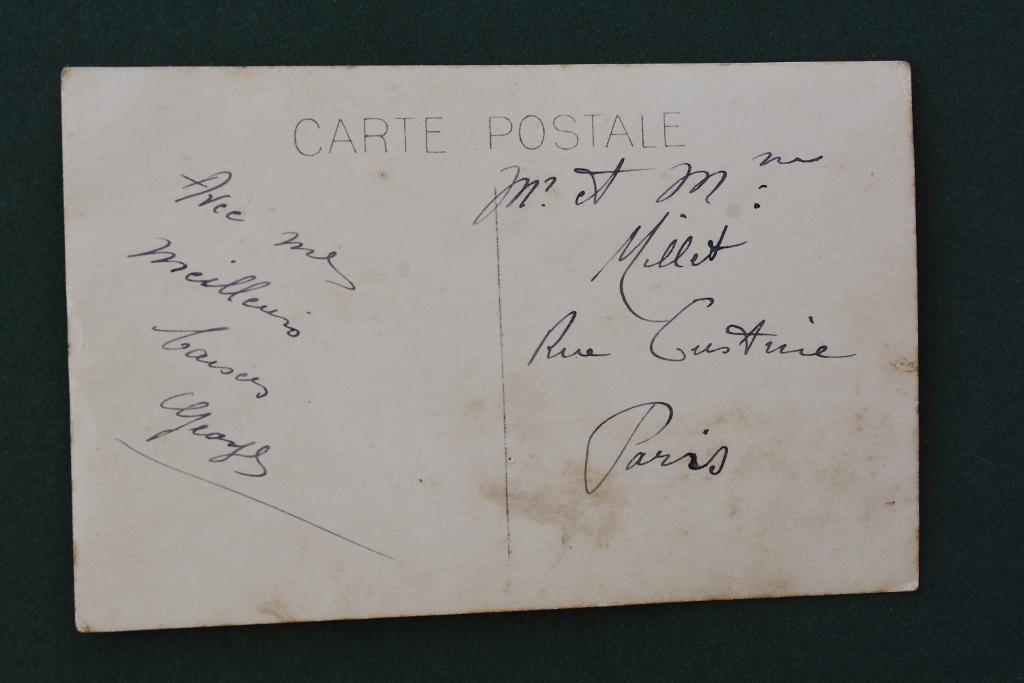 CARTE POSTALE
Avec mes
Meilleurs
baisers
Georges
Mr. et Mme
Millet
Rue Custine
Paris